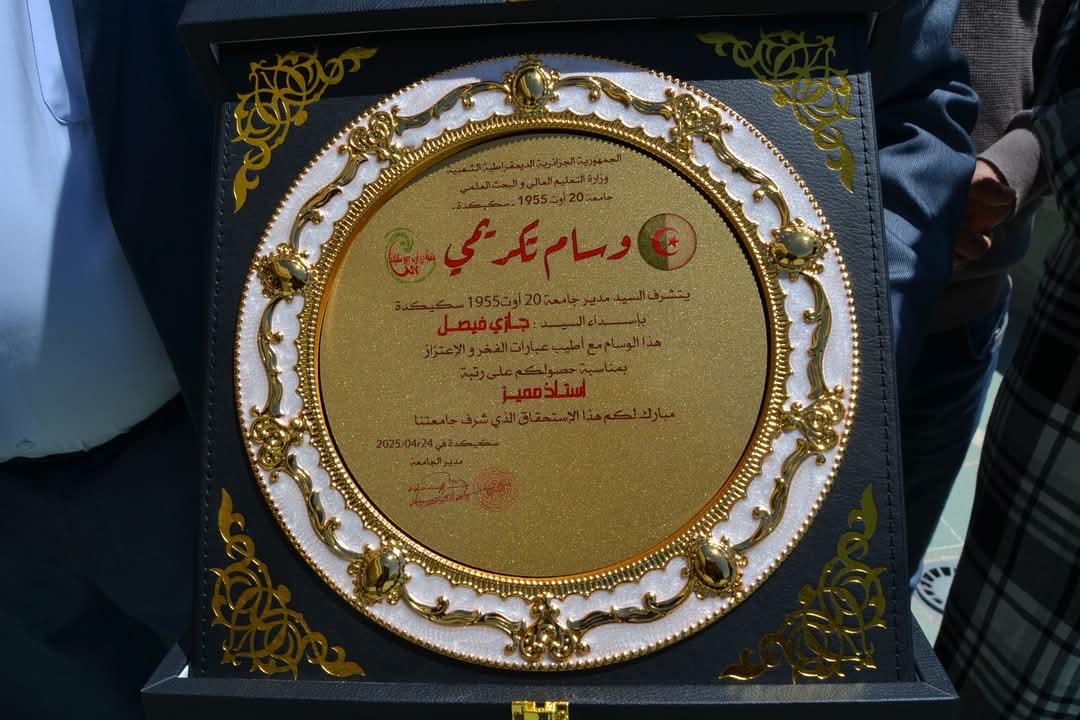 الجمهورية الجزائرية الديمقراطية الشعبية
وزارة التعليم العالي و البحث العلمي
جامعة 20 أوت 1955 ـ سكيكدة ـ
وسام تكريمي
يتشرف السيد مدير جامعة 20 أوت1955 سكيكدة
بإسداء السيد : جازي فيصل
هذا الوسام مع أطيب عبارات الفخر و الإعتزاز
بمناسبة حصولكم على رتبة
أستاذ مميز
مبارك لكم هذا الإستحقاق الذي شرف جامعتنا
سكيكدة في 2025/04/24
مدير الجامعة